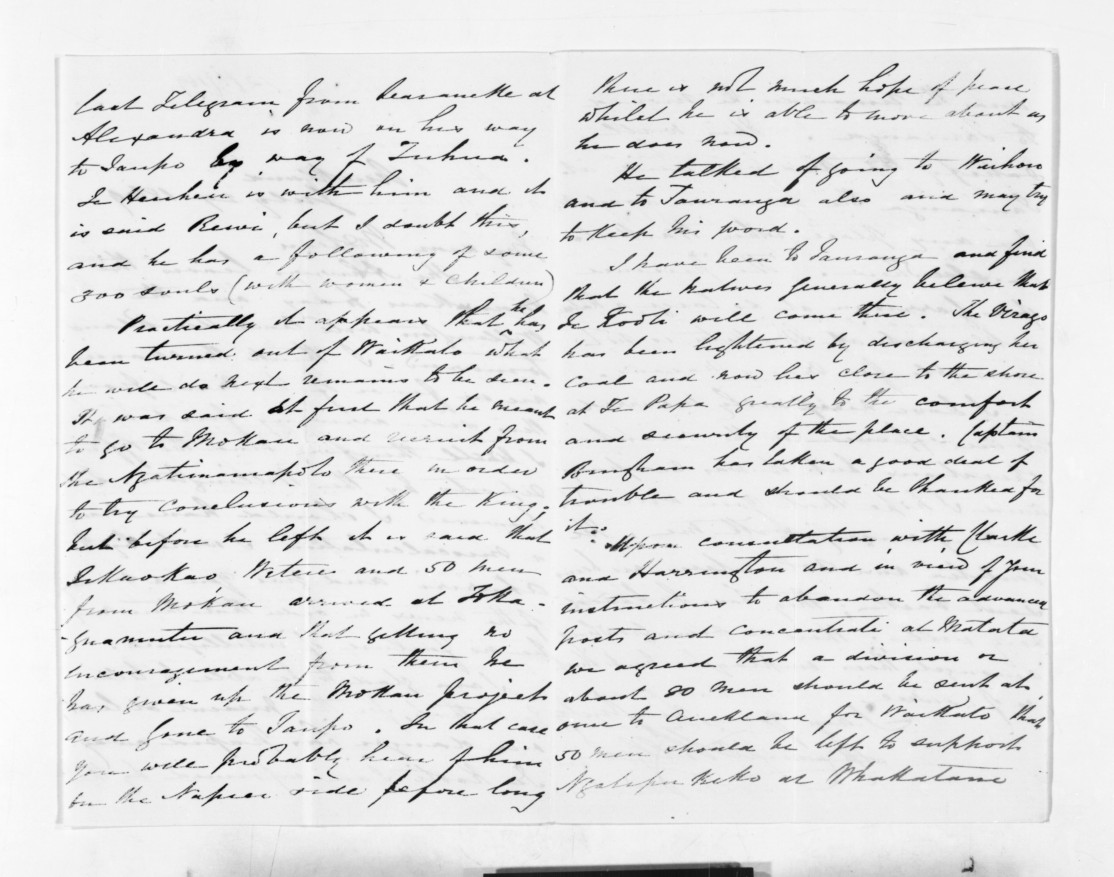 last Telegram from Searancke at
Alexandra is now on his way
to Taupo by way of Tuhua.
Te Heuheu is with him and it
is said Rewi, but I doubt this,
and he has a following of some
300 souls (with women & children)
Practically it appears that he has
been turned out of Waikato what
he will do next remains to be seen.
He was said at first that he meant
to go to Mokau and recruit from
the Ngatimamapoto there in order
to try conclusions with the King.
But before he left it is said that
Te Kaokao Wetere and 50 men
from Mokau arrived at Toka-
-gnamutu and that getting no
encouragement from them he
has given up the Mokau project
and gone to Taupo. In that case
you will probably hear of him
on the Napier side before long
there is not much hope of peace
whilst he is able to move about as
he does now.
He talked of going to Waihou
and to Tauranga also and may try
to keep his word.
I have been to Tauranga and find
that the natives generally believe that
Te Kooti will come there. The Virago
has been lightened by discharging her
coal and now lies close to the shore
at Te Papa greatly to the comfort
and security of the place. Captain
Bingham has taken a good deal of
trouble and should be thanked for
it.
Upon consultation with Clarke
and Harrington and in view of your
instructions to abandon the advanced
posts and concentrate at Matata
we agreed that a division or
about 80 men should be sent at
once to Auckland for Waikato that
50 men should be left to support
Ngatipukeko at Whakatane